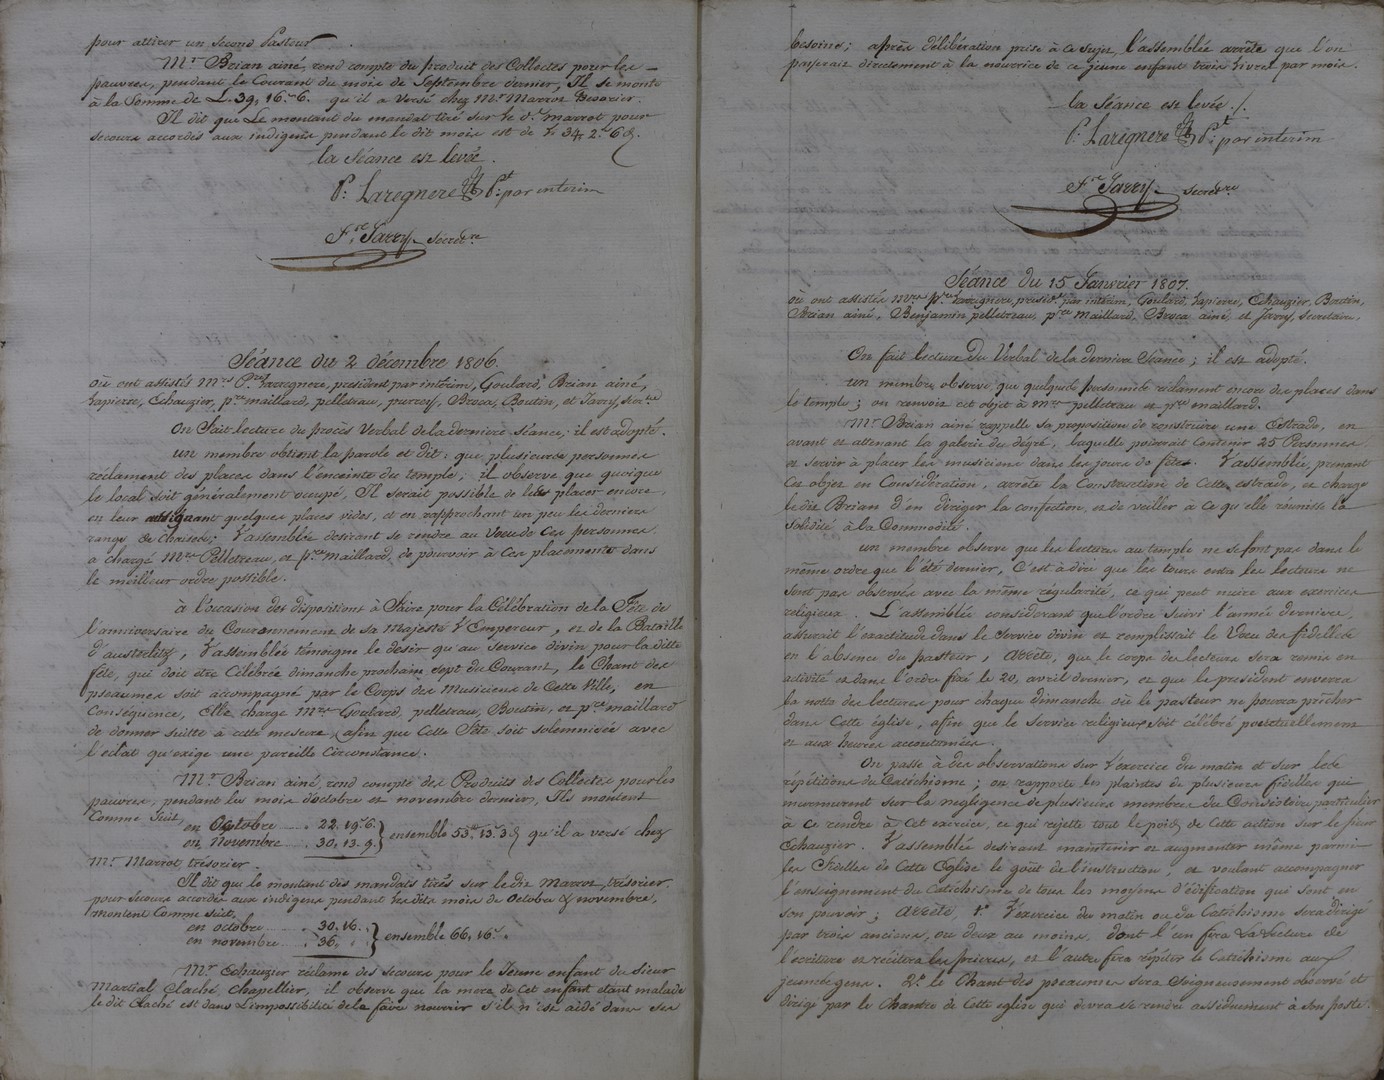 pour attirer un second Pasteur.
Mr. Brian ainé, rend compte du produit des Collectes pour les
pauvres, pendant le Courant du mois de Septembre dernier, Il se monte
à la Somme de L. 39, 16.s 6. qu'il a versé chez Mr. Marrot trésorier.
Il dit que Le montant du mandat tiré sur le d. marrot pour
secours accordés aux indigens pendant le dit mois est de # 34. 2.s 6 d.
la Séance est levée.
P: Laregnere Pt: par interim
Fre Jarry Secrétre
Séance du 2 décembre 1806.
où ont assistés Mrs. Pre Lareignere, président par intérim, Goulard, Brian ainé,
Lapierre, Echauzier, pre maillard, pelletreau, Broca, Boutin, et Jarry, Secre
On fait lecture du procès Verbal de la derniere Séance; il est adopté.
un membre obtient la parole et dit: que plusieurs personnes
réclament des places dans l'enceinte du temple; il observe que quoique
le local soit généralement occupé, Il serait possible de les placer encore,
en leur assignant quelques places vides, et en rapprochant un peu les derniers
rangs de chaises; L'assemblée desirant se rendre au Voeu de ces personnes
a chargé Mrs Pelletreau, et pre maillard, de pourvoir à ces placements dans
le meilleur ordre possible.
à l'occasion des dispositions à faire pour la Célébration de la Fête de
l'anniversaire du Couronnement de sa Majesté L'Empereur, et de la Bataille
d'austrelitz, L'assemblée témoigne le desir qu'au service divin pour la ditte
fête, qui doit être Célébrée dimanche prochain sept du Courant, le Chant des
pseaumes soit accompagné par le Corps des Musiciens de Cette Ville, en
Conséquence, Elle charge Mrs. Goulard, pelletreau, Boutin, et pre maillard
de donner suitte à cette mesure, afin que Cette fête soit solemnisée avec
l'éclat qu'exige une pareille Circonstance.
Mr. Brian ainé, rend compte des Produits des Collectes pour les
pauvres, pendant les mois d'octobre et novembre dernier, Ils montent
Comme Suit,
en Octobre ..... 22. 19.s 6.
en Novembre .... 30. 13. 9. } ensemble 53. 13.s 3 d qu'il a versé chez
Mr. Marrot trésorier.
Il dit que le montant des mandats tirés sur le dit Marrot, trésorier,
pour secours accordés aux indigens pendant les dits mois de Octobre & novembre,
montent Comme suit,
en octobre ....... 30. 16.
en novembre .... 36. } ensemble 66. 16.s
Mr. Echauzier réclame des secours pour le Jeune enfant du sieur
Martial Claché, chapellier, il observe que la mere de Cet enfant etant malade
le dit Claché est dans L'impossibilité de la faire nourrir s'il n'est aidé dans ses
besoins; après délibération prise à ce sujet, l'assemblée arrête que l'on
payerait directement à la nourrice de ce jeune enfant trois livres par mois.
la Séance est levée./.
P: Laregnere Pt: par interim
Fre Jarry Secrétre
Séance du 15 Janvier 1807.
où ont assistés Mrs Pre Lareignere, présidt par intérim, Goulard, Lapierre, Echauzier, Boutin,
Brian ainé, Benjamin pelletreau, pre Maillard, Broca ainé, et Jarry, secretaire.
On fait lecture du Verbal de la derniere Séance; il est adopté.
un membre observe que quelques personnes réclament encore des places dans
le temple; on renvoie cet objet à Mrs pelletreau et pre maillard.
Mr. Brian ainé rappelle sa proposition de construire une Estrade, en
avant et attenant la galerie du dégré, laquelle pourrait Contenir 25 Personnes
et servir à placer les musiciens dans les jours de fête. L'assemblée, prenant
Cet objet en Considération, arrête la Construction de Cette estrade, et charge
le dit Brian d'en diriger la confection, et de veiller à ce qu'elle réunisse la
Solidité à la Commodité.
un membre observe que les lectures au temple ne se font pas dans le
même ordre que l'été dernier, C'est à dire que les tours entre les lecteurs ne
sont pas observés avec la même régularité, ce qui peut nuire aux exercices
religieux. L'assemblée considerant que l'ordre suivi l'année derniere,
assurait l'exactitude dans le Service divin et remplissait le Voeu des fidelles
en l'absence du pasteur, arrête, que le corps des lecteurs sera remis en
activité et dans l'ordre fixé le 20. avril dernier, et que le president enverra
la notte des lectures pour chaque dimanche où le pasteur ne pourra prêcher
dans Cette église, afin que le Service religieux soit célébré ponctuellement
et aux heures accoutumées.
On passe à des observations sur L'exercice du matin et sur les
répétitions du Catéchisme; on rapporte les plaintes de plusieurs fidelles qui
murmurent sur la négligence de plusieurs membres du Consistoire particulier
à ce rendre à Cet exercice, ce qui rejette tout le poid de Cette action sur le sieur
Echauzier. L'assemblée desirant maintenir et augmenter même parmi
les Fidelles de Cette Eglise le goût de l'instruction, et voulant accompagner
l'enseignement du Catechisme de tous les moyens d'édification qui sont en
son pouvoir; arrête, 1.° L'exercice du matin ou du Catéchisme sera dirigé
par trois anciens, ou deux au moins, dont l'un fera La Lecture de
l'ecriture et récitera les prieres, et l'autre fera répéter le Catéchisme aux
jeunes gens. 2.° le Chant des pseaumes sera Soigneusement observé et
dirigé par le Chantre de Cette eglise qui devra se rendre assiduement à son poste.